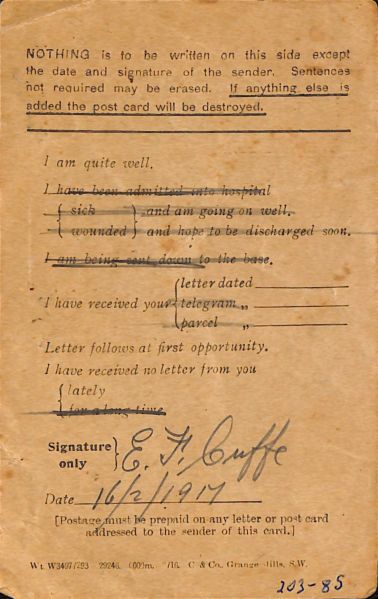 NOTHING is to be written on this side except
the date and signature of the sender. Sentences
not required may be erased. If anything else is
added the post card will be destroyed.
I am quite well.
I have been admitted into hospital
{ sick } and am going on well.
{ wounded } and hope to be discharged soon.
I am being sent down to the base.
I have received your { letter dated
telegram „
parcel „
Letter follows at first opportunity.
I have received no letter from you
{ lately
for a long time
Signature only } E. F. Cuffe
Date 16/2/1917
[Postage must be prepaid on any letter or post card
addressed to the sender of this card.]
Wt. W3497/293 29246. 6000m. /16. C & Co., Grange Mills, S.W.
203-85